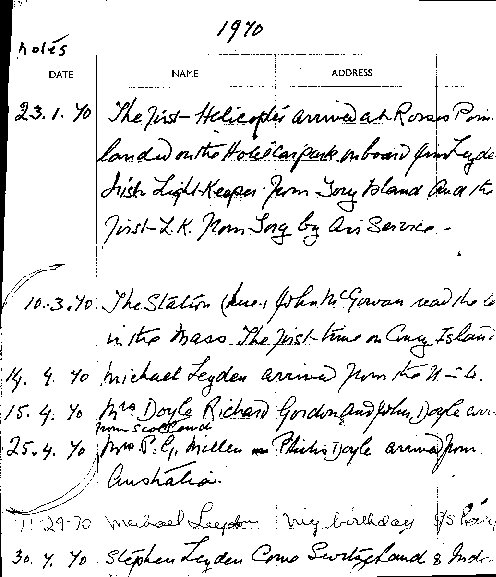 1970
notes
DATE NAME ADDRESS
23.1.70 The First Helicopter arrived at Rosses Poin
landed on the Hotel Car park, on board Jim Leyde
Irish Light Keeper from Tory Island and the
First L.K. from Tory by Air Service.
10.3.70 The Station John McGowan read the
in the Mass. The first time on Coney Island
14.4.70 Michael Leyden arrived from the
15.4.70 Mrs Doyle Richard Gordon and John Doyle arr
from Scotland
25.4.70 Mrs P. G. Millen Philis Doyle arrived from
Australia
11-29-70 Michael Leyden My birthday
30.4.70 Stephen Leyden Come Switzerland & Ind